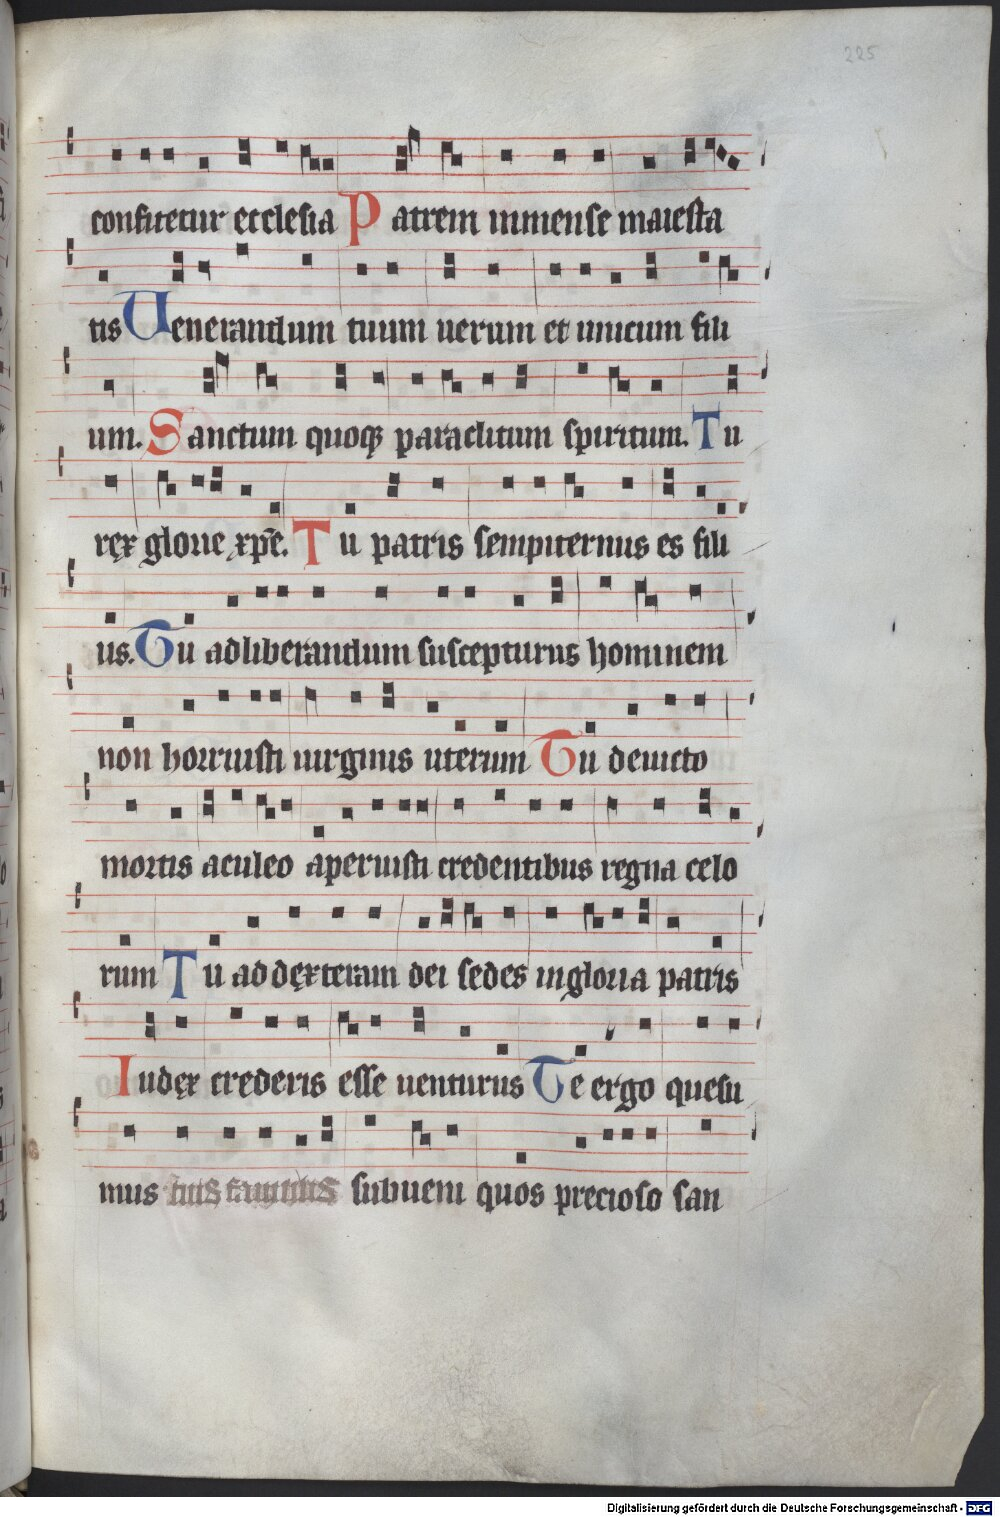 225
confitetur ecclesia Patrem inmense maiesta
tis Uenerandum tuum uerum et unicum fili
um. Sanctum quoqꝫ paraclitum spiritum. Tu
ręx glorie xp̄e. Tu patris sempiternus es fili
us. Tu ad liberandum suscepturus hominem
non horruisti uirginis uterum Tu deuicto
mortis aculeo aperuisti credentibus regna celo
rum Tu ad dęxteram dei sedes in gloria patris
Iudęx crederis esse uenturus Te ergo quesu
mus tuis famulis subueni quos precioso san
Digitalisierung gefördert durch die Deutsche Forschungsgemeinschaft - DFG